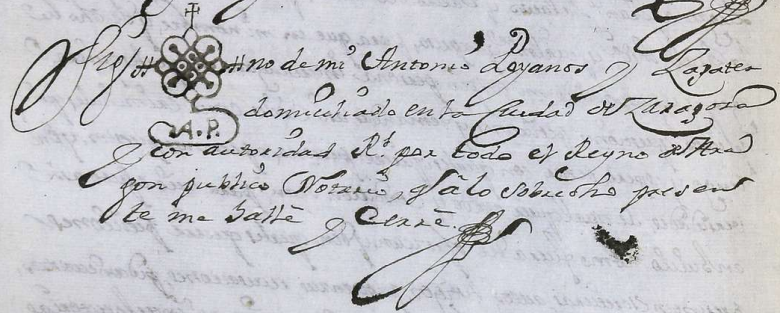 Sig#no de mi Antonio Loyanos y Zapater
A.P. domiciliado en la Ciudad de Zaragoza
y con autoridad Rl. por todo el Reyno de Ara
gon publico Notario, q a lo sobredho presen
te me halle y cerre.